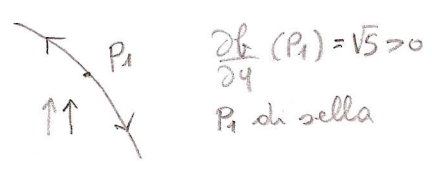 P₁
∂f/∂y (P₁) = √5 > 0
P₁ di sella